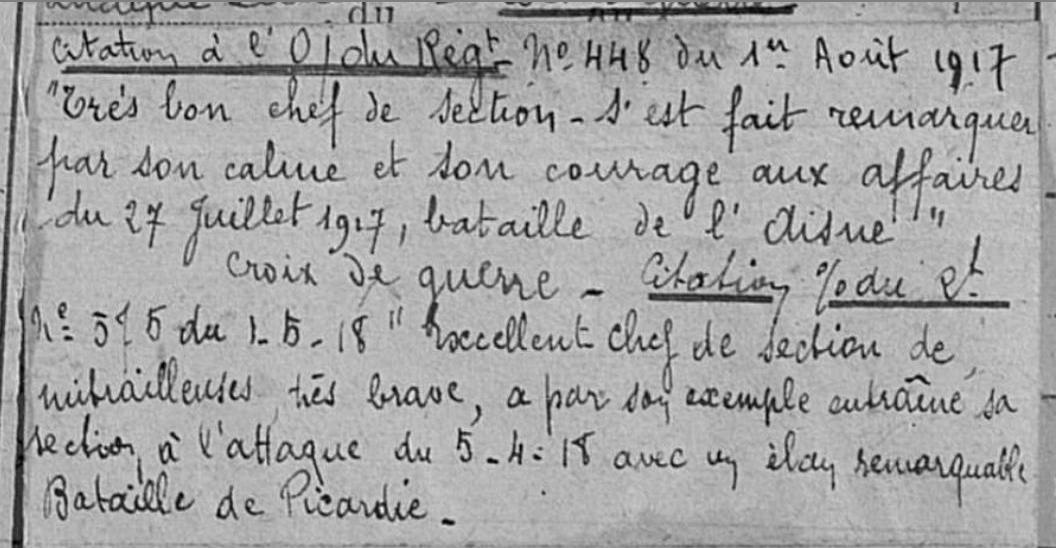 du
Citation à l'OJ du Régt - No 448 du 1er Août 1917
"Trés bon chef de section - s'est fait remarquer
par son calme et son courage aux affaires
du 27 Juillet 1917, bataille de l'Aisne"
Croix de guerre - Citation % du Rt
No 575 du 1-5-18 "Excellent Chef de section de
mitrailleuses, très brave, a par son exemple entraîné sa
section, à l'attaque du 5-4-18 avec un élan remarquable
Bataille de Picardie -